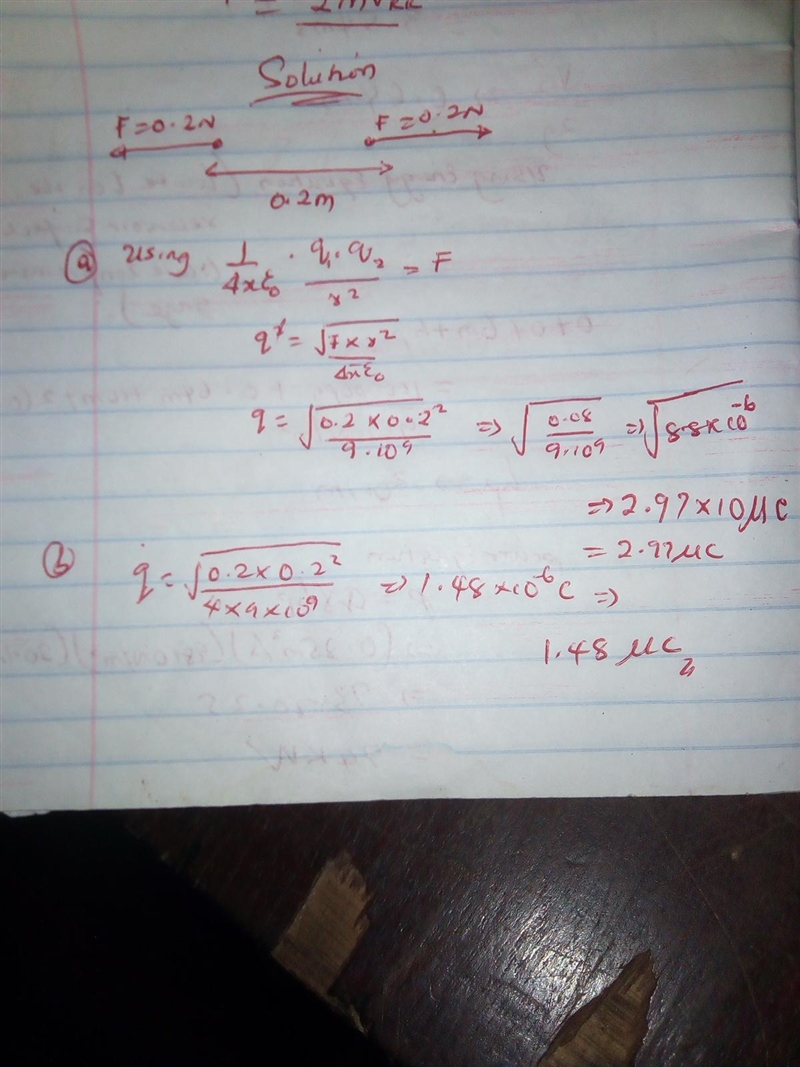 Solution
F = 0.2N F = 0.2N
0.2m
(a) Using 1/4πε0 · q1·q2/r² = F
q² = √(F × r²/4πε0)
q = √(0.2 × 0.2²/9·10⁹) => √(0.08/9·10⁹) => √8.8×10⁻⁶
=> 2.97 × 10 μC
= 2.97 μC
(b) q = √(0.2 × 0.2²/4×9×10⁹) => 1.48 × 10⁻⁶ C =>
1.48 μC